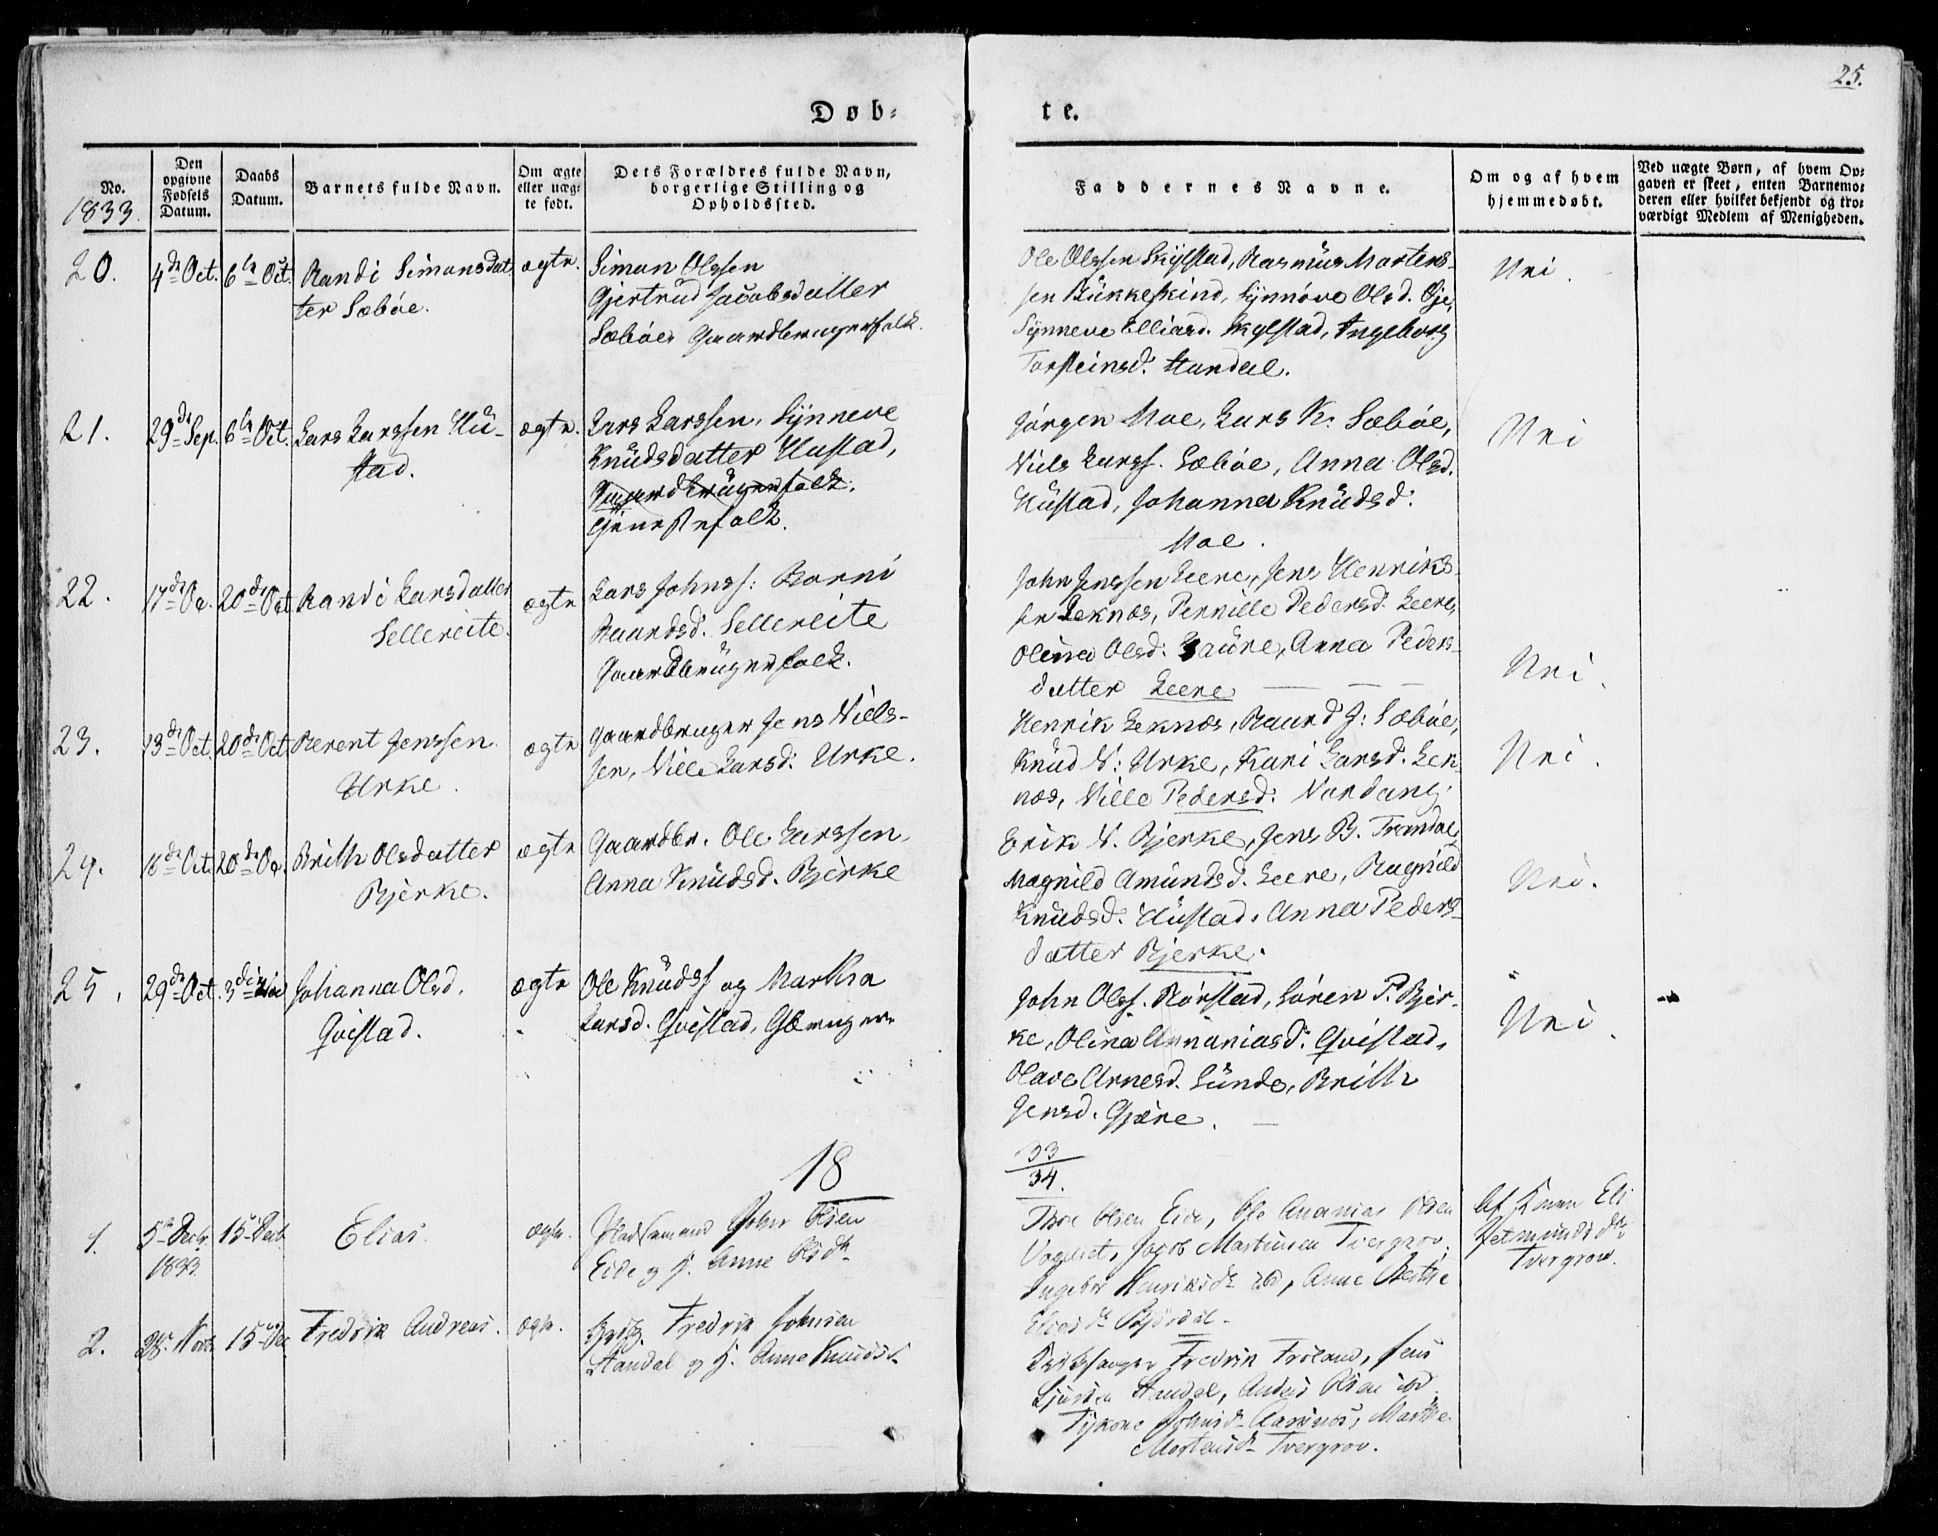 25.
Døb-te.
No.
Den opgivne Fødsels Datum.
Daabs Datum.
Barnets fulde Navn.
Om ægte eller uægte født.
Dets Forældres fulde Navn, borgerlige Stilling og Opholdssted.
Faddernes Navne.
Om og af hvem hjemmedøbt.
Ved uægte Børn, af hvem Opgaven er skeet, enten Barnemoderen eller hvilket bekjendt og troværdigt Medlem af Menigheden.
1833.
20. 4de Oct. 6te Oct. Randi Simonsdat
ter Sæbøe.
ægte.
Simon Olssen
Gjertrud Jacobsdatter
Sæbøe Gaardbrugerfolk.
Ole Olssen Skylstad, Rasmus Martens-
sen Bükkeskind, Synnøve Olsd. Øje,
Synneve Elliasd. Skylstad, Ingeborg
Torsteinsd. Standal.
Nei.
21. 29de Sep. 6te Oct. Lars Larssen Hu-
stad.
ægte.
Lars Larssen, Synneve
Knüdsdatter Hustad,
Gaardbrügerfolk.
Gjenestefolk.
Jørgen Moe, Lars K. Sæbøe,
Niels Larss. Sæbøe, Anna Olsd.
Hüstad, Johanna Knüdsd.
Moe.
Nei
22. 17de Oc. 20de Oct Randi Larsdatter
Sellereite.
ægte
Lars Johnss: Borni
Baardsd. Sellereite
Gaardbrügerfolk.
John Jenssen Leere, Jens Henriks-
sen Leknæs, Pernille Pedersd. Leere,
Olina Olsd: Saure, Anna Peders-
datter Leere
Nei.
23. 13de Oct. 20de Oct. Berent Jenssen
Urke.
ægte
Gaardbruger Jens Niels-
sen, Nille Larsd: Urke.
Henrik Leknæs, Baard J: Sæbøe,
Knüd N: Urke, Kari Larsd. Lek-
næs, Nille Pedersd: Nordang.
Nei.
24. 16de Oct. 20de Oc. Brith Olsdatter
Bjerke.
ægte
Gaardbr. Ole Larssen,
Anna Knüdsd. Bjerke
Erik N. Bjerke, Jens B. Trandal,
Magnild Amundsd. Leere, Ragnild
Knudsd. Hüstad, Anna Peders-
datter Bjerke.
Nei.
25. 29de Oct. 3die Johanna Olsd.
Qvistad.
ægte
Ole Knüdss og Martha
Larsd. Qvistad, Gbruger
John Olss. Rørstad, Søren P. Bjer-
ke, Olina Annaniasd: Qvistad,
Olave Arnesd. Sünde, Brith
Jensd. Gjære.
Nei.
18
33
34.
1. 5te Decbr. 1833. 15 Decb. Elias.
ægte.
Pladsemand Peder Olsen
Eide og H. Anne Olsdtr
Thore Olsen Eide, Ole Ananias Olsen
Vogneset, Jacob Martinsen Tvergrov
Ingebor Henriksdtr ibd, Anne Berthe
Eliasdtr Bjørdal.
Af Konen Eli
Tvergrov.
2. 28 Novb. 15 Dec Fredrik Andreas.
ægte.
Fredrik Johnsen
Standal og H. Anne Knudsd.
Kirkesanger Fredrik Froland, Jens
Standal, Anders Olsen ibd
Johnsd. Aarsnes, Marthe
Mortensdtr Tvergrov.